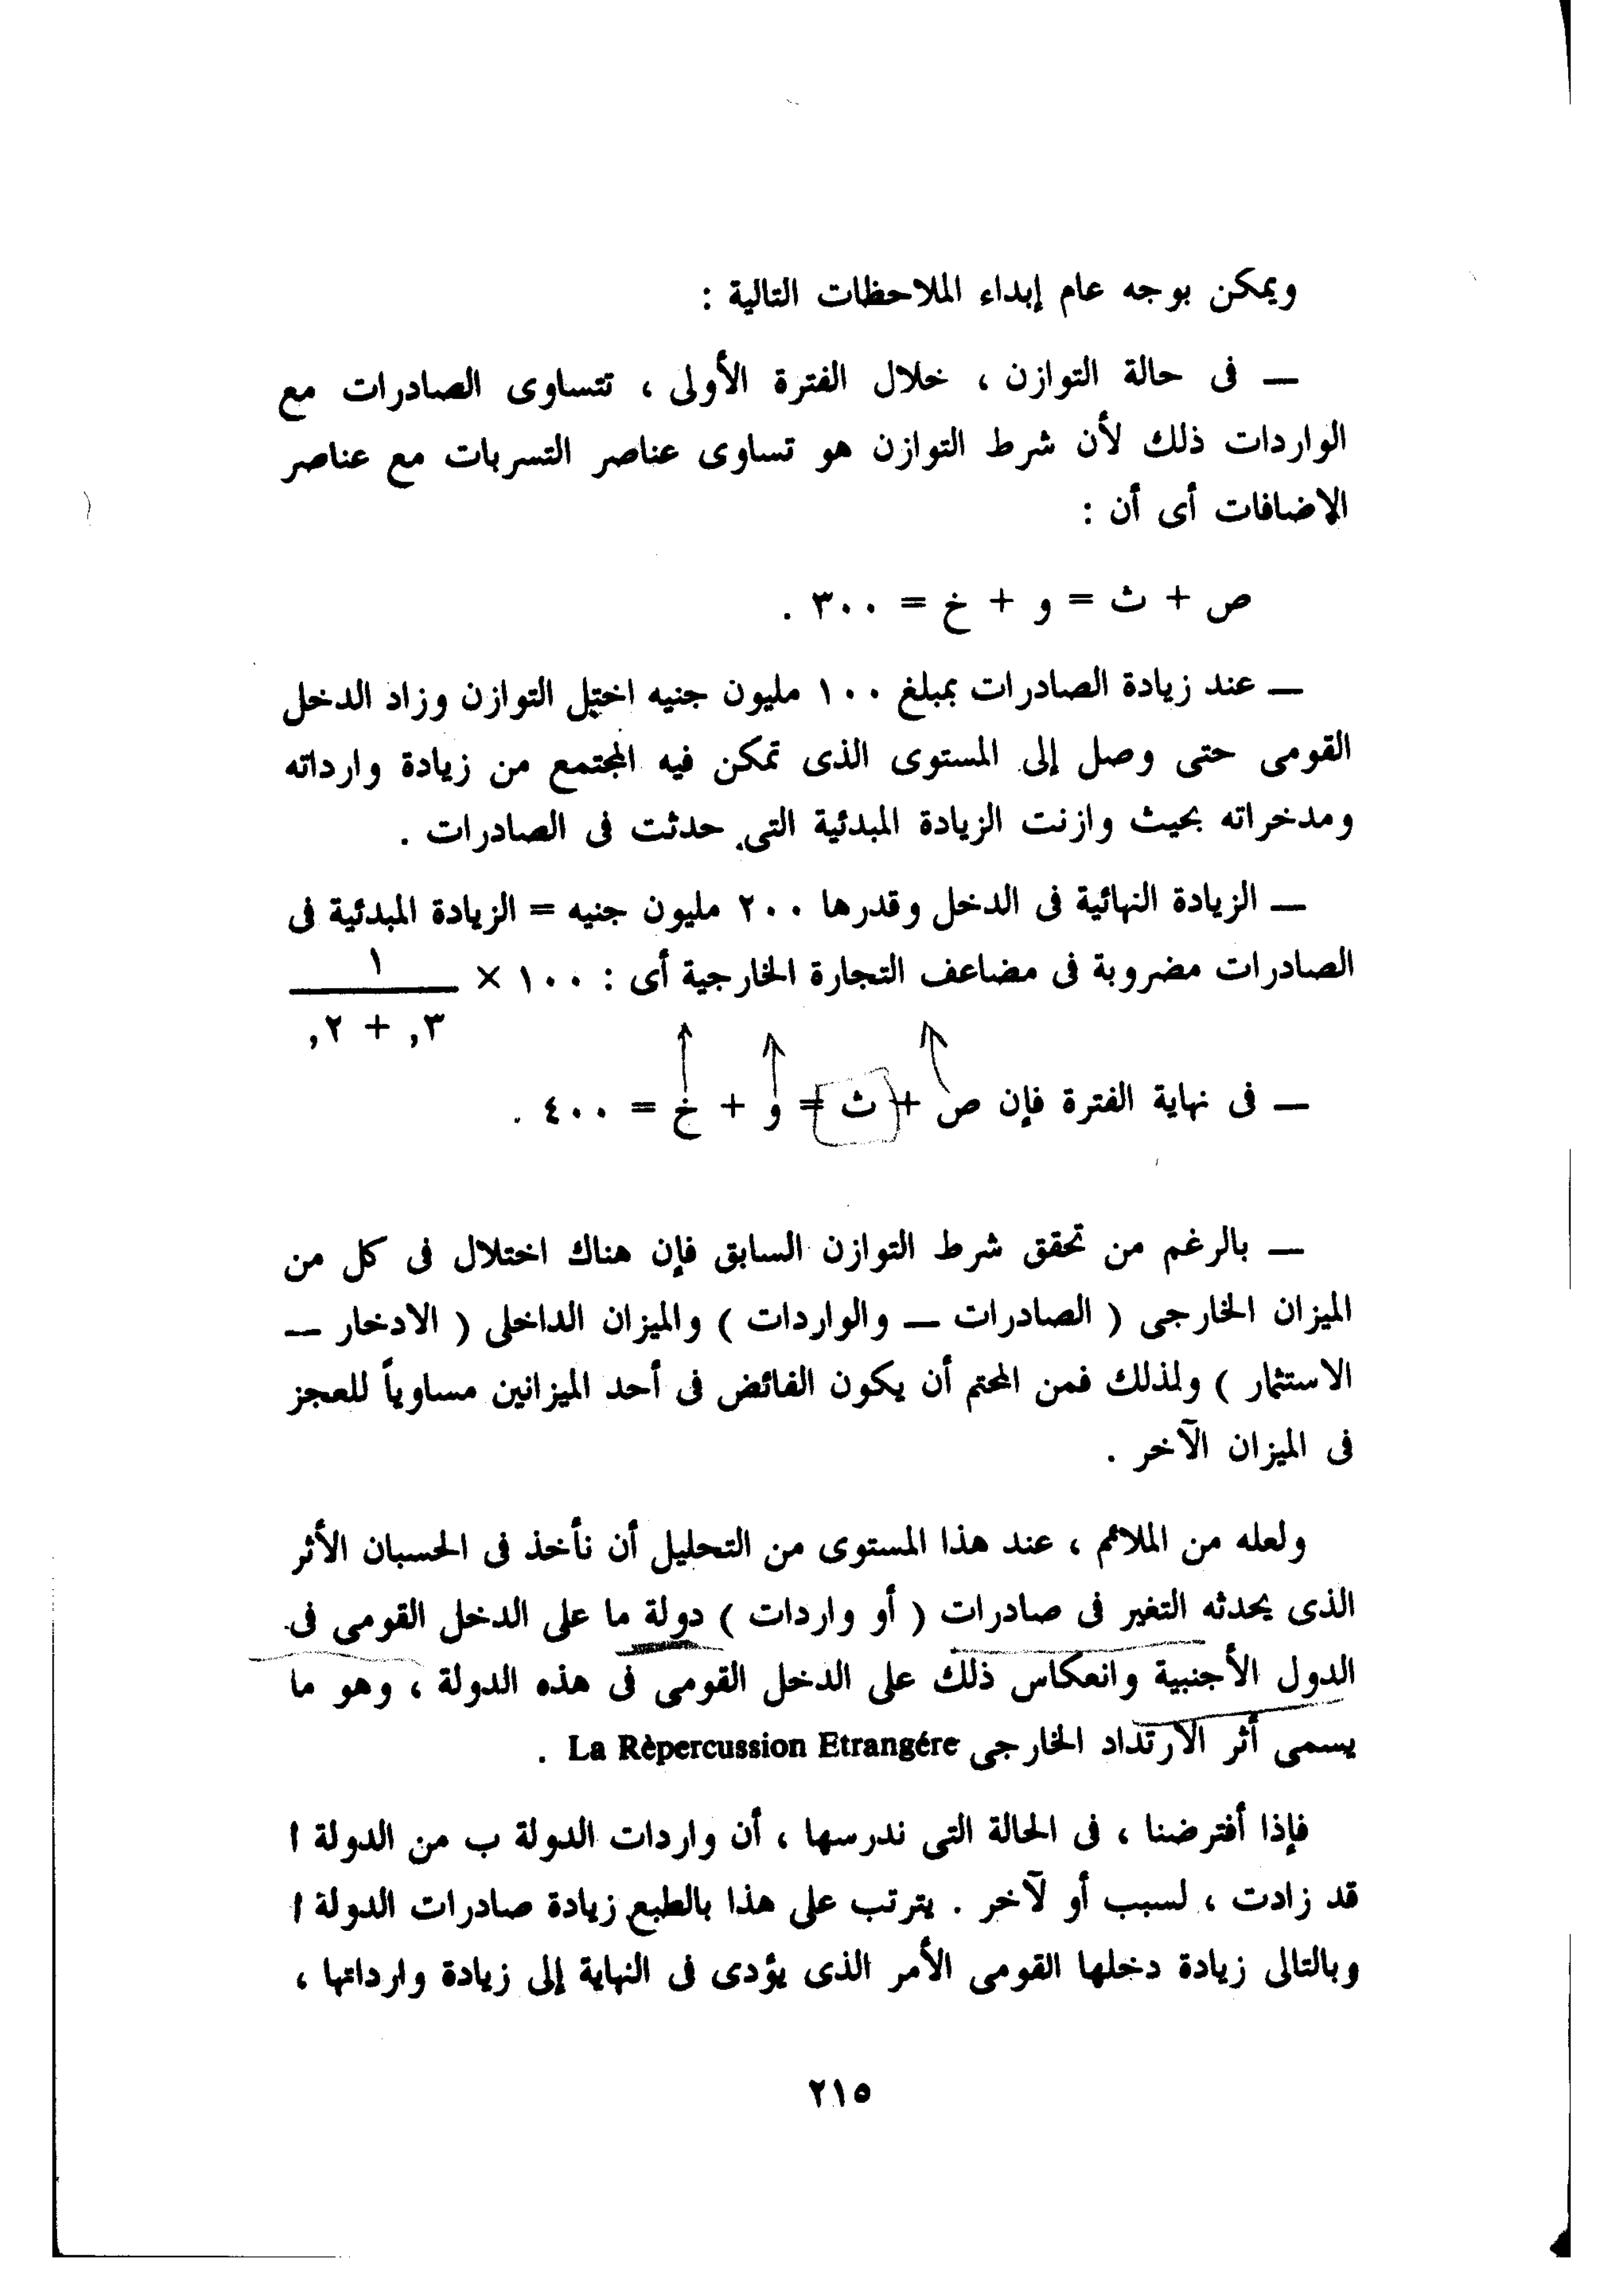 ويمكن بوجه عام إبداء الملاحظات التالية :
— فى حالة التوازن ، خلال الفترة الأولى ، تتساوى الصادرات مع
الواردات ذلك لأن شرط التوازن هو تساوى عناصر التسربات مع عناصر
الإضافات أى أن :
ص + ث = و + خ = ٣٠٠ .
— عند زيادة الصادرات بمبلغ ١٠٠ مليون جنيه اختل التوازن وزاد الدخل
القومى حتى وصل إلى المستوى الذى تمكن فيه المجتمع من زيادة وارداته
ومدخراته بحيث وازنت الزيادة المبدئية التى حدثت فى الصادرات .
— الزيادة النهائية فى الدخل وقدرها ٢٠٠ مليون جنيه = الزيادة المبدئية فى
الصادرات مضروبة فى مضاعف التجارة الخارجية أى : ١٠٠ × ١
٣, + ٢,
— فى نهاية الفترة فإن ص + ث = و + خ = ٤٠٠ .
— بالرغم من تحقق شرط التوازن السابق فإن هناك اختلال فى كل من
الميزان الخارجى ( الصادرات — والواردات ) والميزان الداخلى ( الادخار —
الاستثمار ) ولذلك فمن المحتم أن يكون الفائض فى أحد الميزانين مساوياً للعجز
فى الميزان الآخر .
ولعله من الملائم ، عند هذا المستوى من التحليل أن نأخذ فى الحسبان الأثر
الذى يحدثه التغير فى صادرات ( أو واردات ) دولة ما على الدخل القومى فى
الدول الأجنبية وانعكاس ذلك على الدخل القومى فى هذه الدولة ، وهو ما
يسمى أثر الارتداد الخارجى La Rèpercussion Etrangére .
فإذا أفترضنا ، فى الحالة التى ندرسها ، أن واردات الدولة ب من الدولة ا
قد زادت ، لسبب أو لآخر . يترتب على هذا بالطبع زيادة صادرات الدولة ا
وبالتالى زيادة دخلها القومى الأمر الذى يؤدى فى النهاية إلى زيادة وارداتها ،
٢١٥